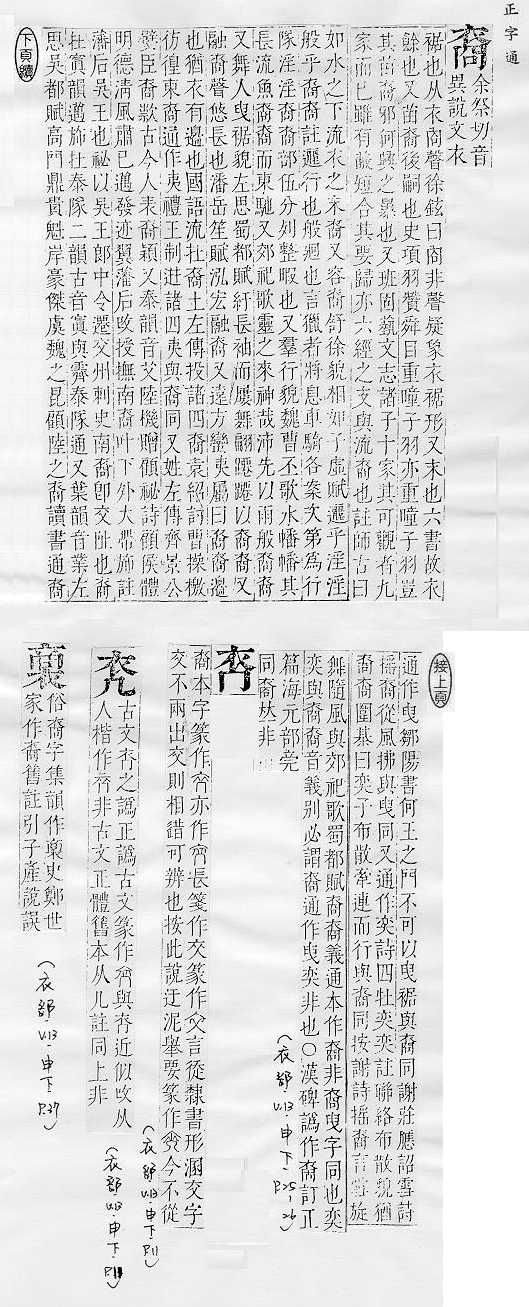 正字通
裔
余祭切音
異說文衣
裾也从衣㕯聲徐鉉曰㕯非聲疑象衣裾形又末也六書故衣
餘也又苗裔後嗣也史項羽贊舜目重瞳子羽亦重瞳子羽豈
其苗裔邪何興之暴也又班固藝文志諸子十家其可觀者九
家而已雖有蔽短合其要歸亦六經之支與流裔也註師古曰
如水之下流衣之末裔又容裔舒徐貌相如子虛賦纚乎淫淫
般乎裔裔註纚行也般𢌞也言獵者將息車騎各案次第爲行
隊淫淫裔裔部伍分列整暇也又羣行貌魏曹丕歌水幡幡其
長流魚裔裔而東馳又郊祀歌靈之來神哉沛先以雨般裔裔
又舞人曳裾貌左思蜀都賦紆長袖而屢舞翩躚躚以裔裔又
融裔聲悠長也潘岳笙賦泓宏融裔又遠方蠻夷屬曰裔裔邊
也猶衣有邊也國語流在裔土左傳投諸四裔袁紹討曹操檄
彷徨東裔通作夷禮王制迸諸四夷與裔同又姓左傳齊景公
嬖臣裔款古今人表裔穎又泰韻音艾陸機贈顧祕詩顧侯體
明德淸風肅已邁發迹翼藩后攺授撫南裔叶下外大帶旆註
藩后吳王也祕以吳王郞中令遷交州刺史南裔卽交阯也裔
在寘韻邁旆在泰隊二韻古音寘與霽泰隊通又葉韻音䕢左
思吳都賦高門鼎貴魁岸豪傑虞魏之昆顧陸之裔讀書通裔
下頁續
接上頁
通作曳鄒陽書何王之門不可以曳裾與裔同謝莊應詔雪詩
搖裔從風拂與曳同又通作奕詩四牡奕奕註聯絡布散貌猶
裔裔圍棊曰奕子布散牽連而行與裔同按謝詩搖裔言雪旋
舞隨風與郊祀歌蜀都賦裔裔義通本作裔非裔曳字同也奕
奕與裔裔音義別必謂裔通作曳奕非也○漢碑譌作裔訂正
篇海元部
同裔𠀤非
(衣部·V.13·申下·P.25-26)
裔本字篆作
交不兩出交則相錯可辨也按此說迂泥舉要篆作
(衣部·V.13·申下·P.11)
古文
人楷作
(衣部·V.13·申下·P.11)
俗裔字集韻作
家作裔舊註引子產說誤
(衣部·V.13·申下·P.27)